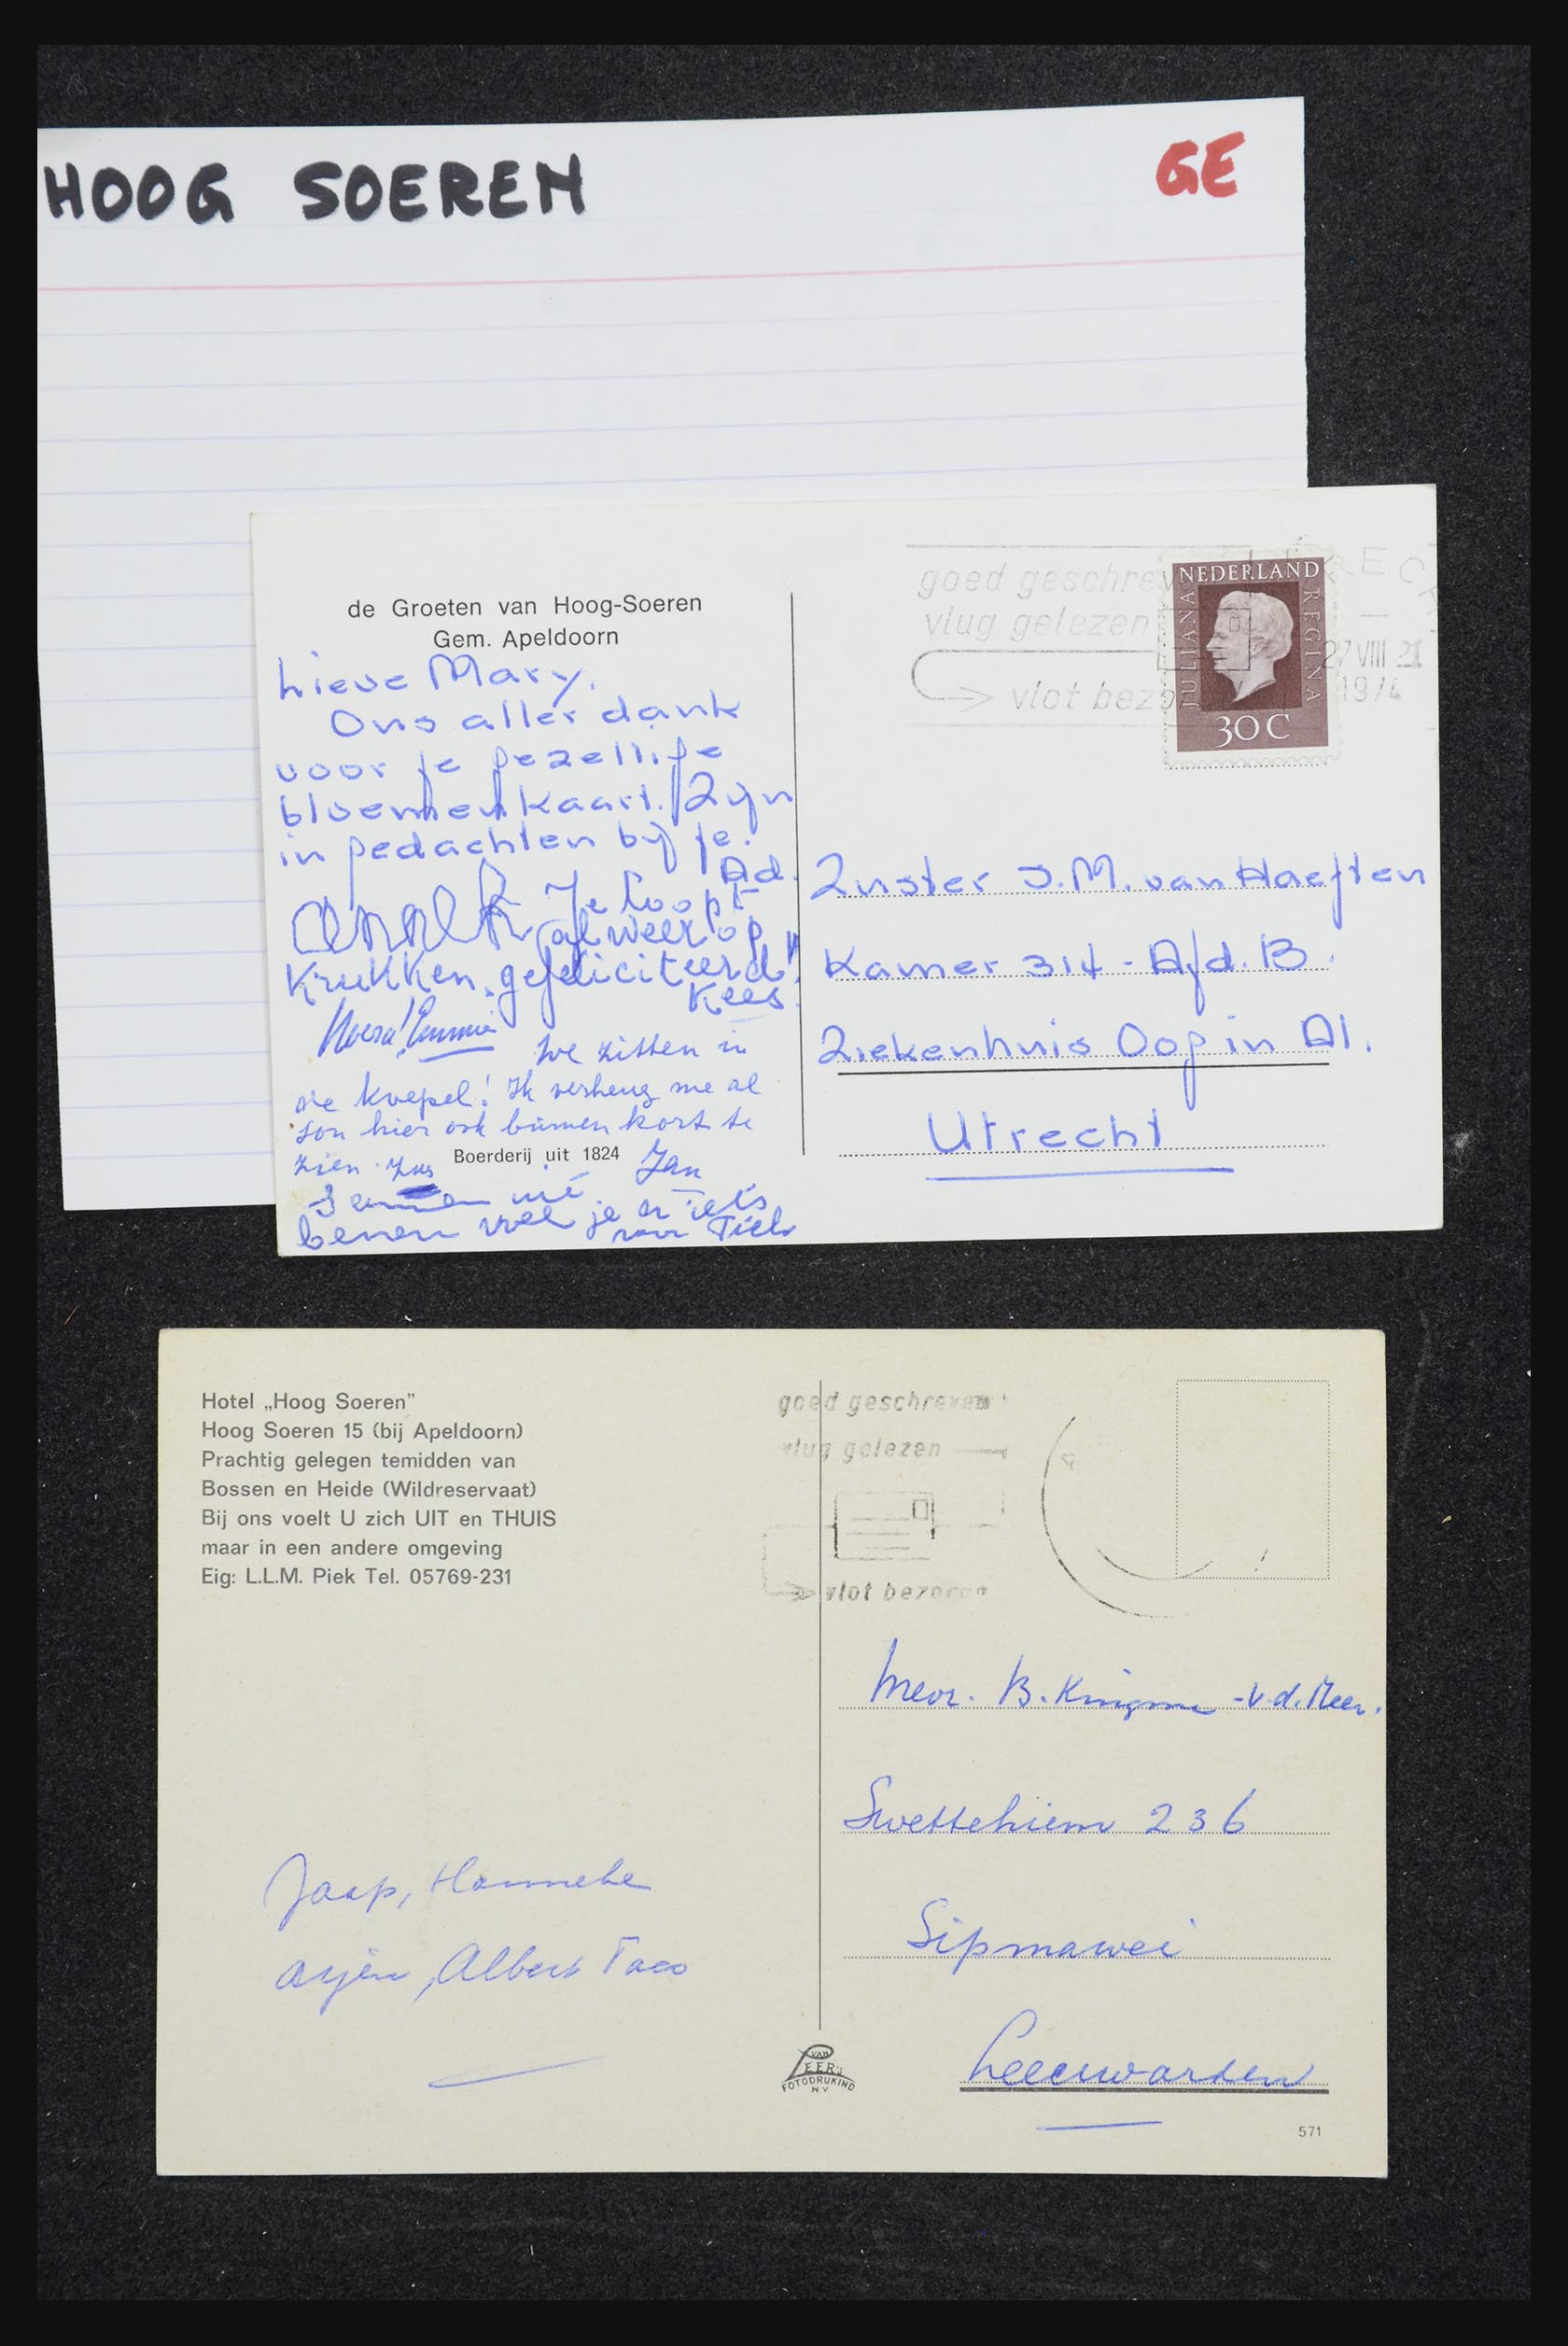 HOOG SOEREN
GE
de Groeten van Hoog-Soeren
Gem. Apeldoorn
Lieve Mary,
Ons aller dank
voor je gezellige
bloemenkaart. Zijn
in gedachten bij je.
Ad.
Je loopt
al weer op
Krukken, gefeliciteerd!!
Kees.
We zitten in
de Koepel! Ik verheug me al
jou hier ook binnen kort te
zien. Zus
Boerderij uit 1824
Jan
benen voel je er iets
voor Tiels
goed geschreven
vlug gelezen
vlot bezorgd
27 VIII
1974
NEDERLAND
JULIANA
REGINA
30 C
Zuster J.M. van Haeften
Kamer 314 - Afd. B.
Ziekenhuis Oog in Al.
Utrecht
Hotel „Hoog Soeren”
Hoog Soeren 15 (bij Apeldoorn)
Prachtig gelegen temidden van
Bossen en Heide (Wildreservaat)
Bij ons voelt U zich UIT en THUIS
maar in een andere omgeving
Eig: L.L.M. Piek Tel. 05769-231
goed geschreven
vlug gelezen
vlot bezorgd
Mevr. B. Kingma - v.d. Meer.
Swettehiem 236
Sipmawei
Leeuwarden
Jaap, Hanneke
Arjen, Albert Taco
VAN
LEER'S
FOTODRUKIND
N.V.
571